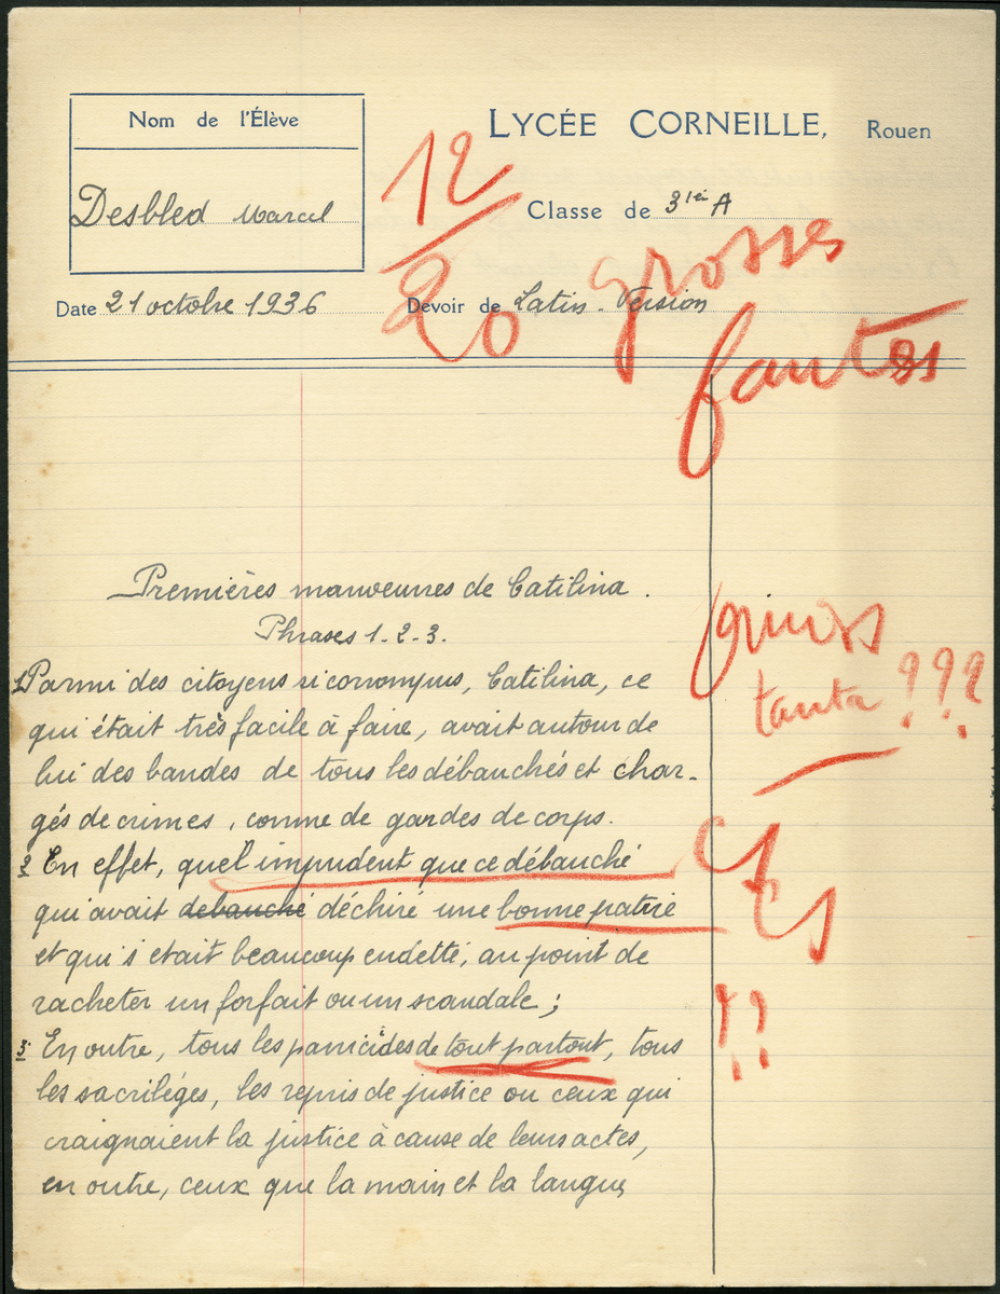 Nom de l'Élève
LYCÉE CORNEILLE, Rouen
Desbled Marcel
12/20
Classe de 3ième A
grosses
fautes
Date 21 octobre 1936
Devoir de Latin - Version
Premières manoeuvres de Catilina.
Phrases 1-2-3.
1 Parmi des citoyens si corrompus, Catilina, ce
qui était très facile à faire, avait autour de
lui des bandes de tous les débauchés et char-
gés de crimes, comme de gardes de corps.
tanta ???
2 En effet, quel impudent que ce débauché
qui avait debauché déchiré une bonne patrie
et qui s'était beaucoup endetté, au point de
racheter un forfait ou un scandale;
!!
3. En outre, tous les parricides de tout partout, tous
les sacrilèges, les repris de justice ou ceux qui
craignaient la justice à cause de leurs actes,
en outre, ceux que la main et la langue